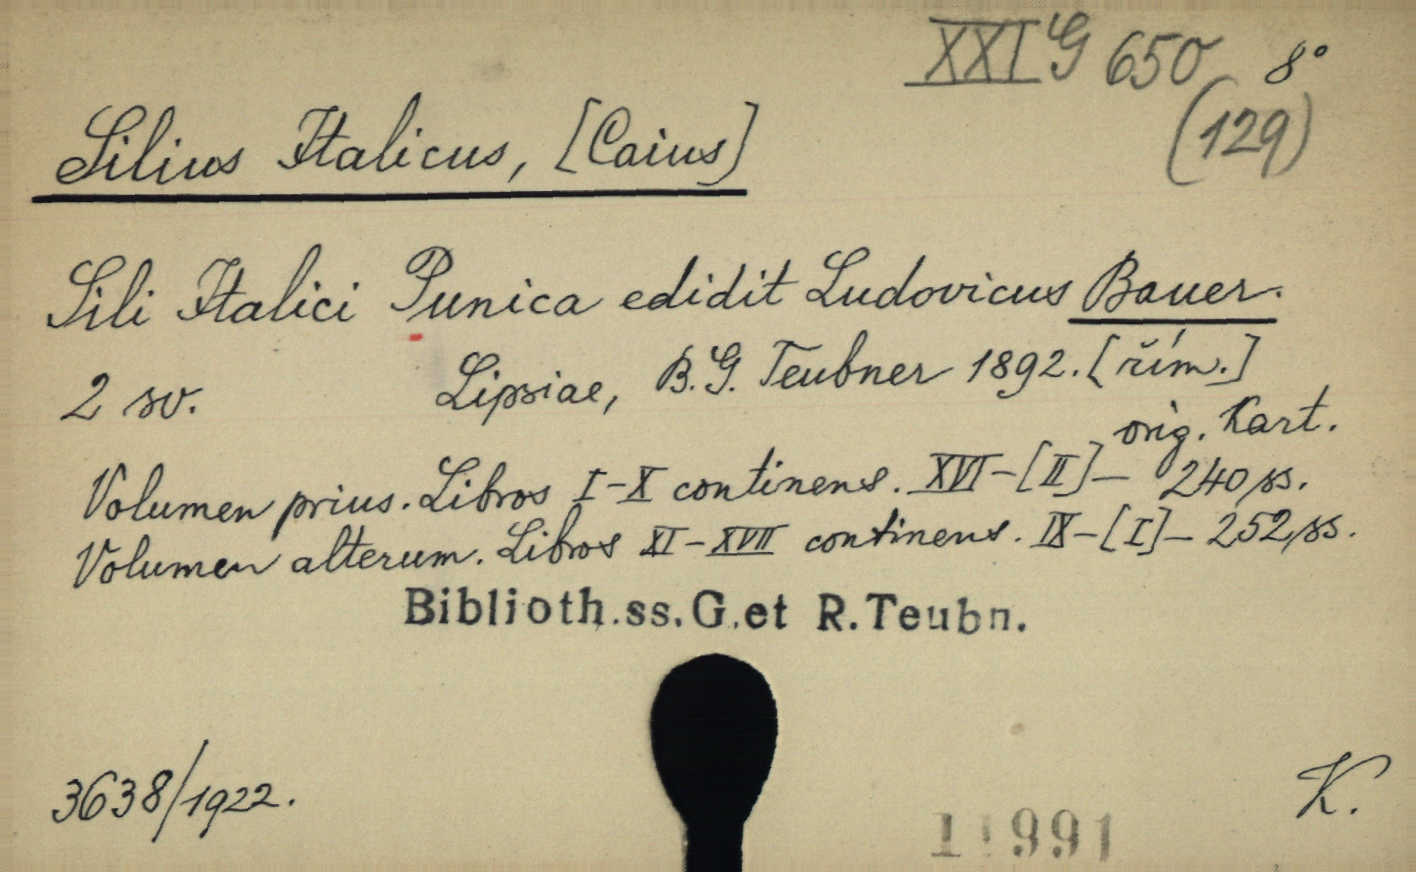 XXI G 650 8°
(129)
Silius Italicus, [Caius]
Sili Italici Punica edidit Ludovicus Bauer.
2 sv. Lipsiae, B. G. Teubner 1892. [řím.]
orig. Kart.
Volumen prius. Libros I-X continens. XVI-[II]- 240 ss.
Volumen alterum. Libros XI-XVII continens. IX-[I]- 252 ss.
Biblioth.ss.G.et R.Teubn.
3638/1922.
K.
11991